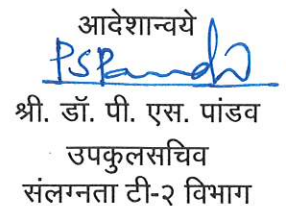 आदेशान्वये
PSPandav
श्री. डॉ. पी. एस. पांडव
उपकुलसचिव
संलग्नता टी-२ विभाग